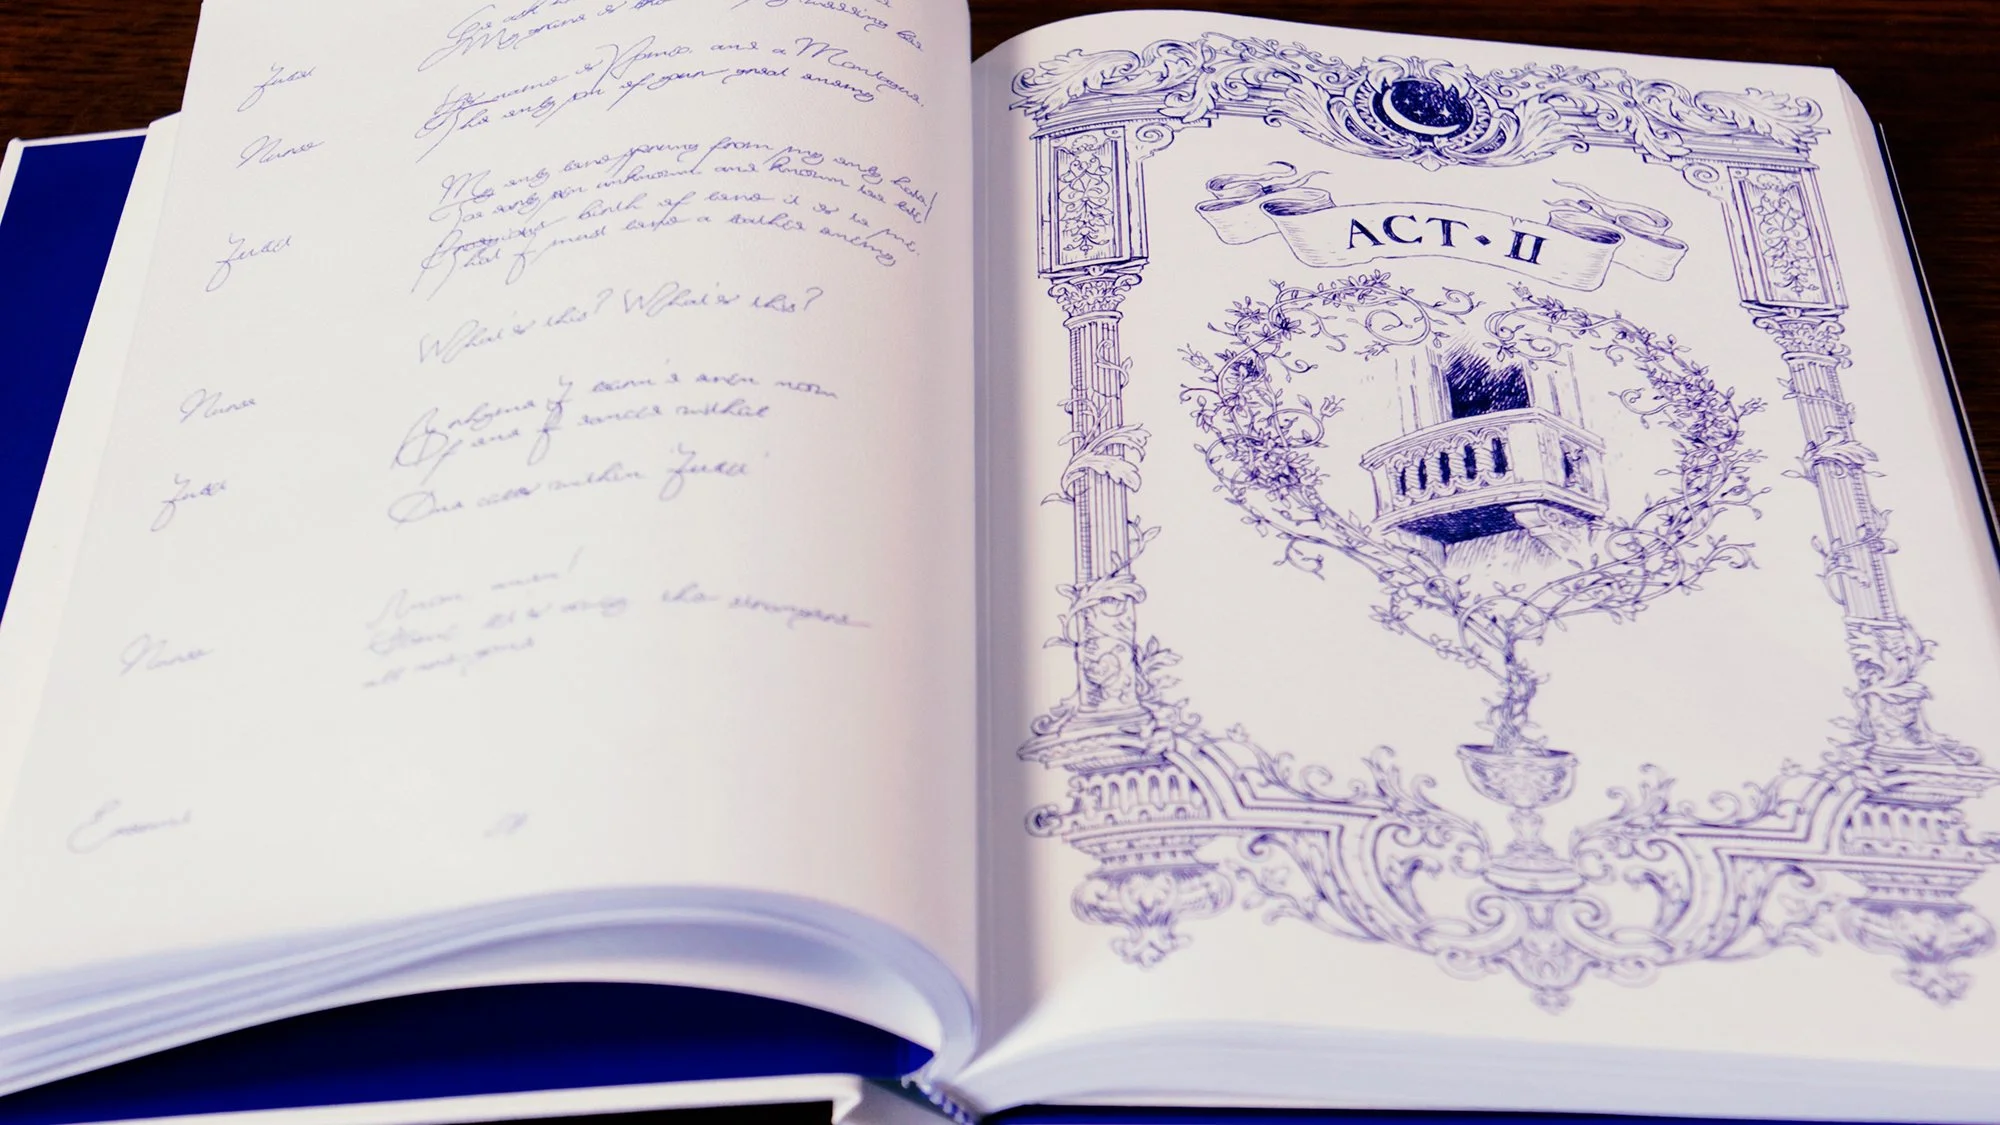 Go ask
Juliet
My grave is wedding bed
Nurse
His name is Romeo, and a Montague,
The only son of your great enemy
Juliet
My only love sprung from my only hate!
Too early seen unknown and known too late!
Prodigious birth of love it is to me,
That I must love a loathed enemy
Nurse
What's this? What's this?
Juliet
A rhyme I learn'd even now
Of one I danced withal
One calls within 'Juliet'
Nurse
Anon anon!
Come let's away the strangers
all are gone
Exeunt
ACT · II